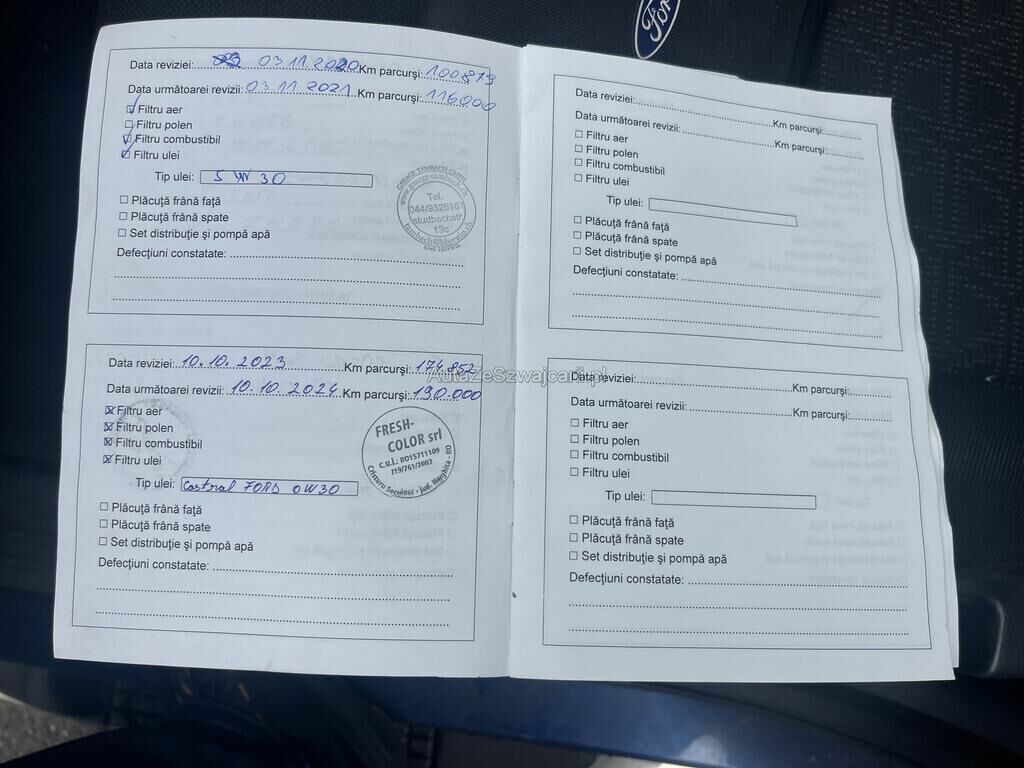 Ford
Data reviziei: 03 11 2020 Km parcurşi: 100879
Data următoarei revizii: 03 11 2021 Km parcurşi: 116000
Filtru aer
Filtru polen
Filtru combustibil
Filtru ulei
Tip ulei: 5 W 30
Plăcuţă frână faţă
Plăcuţă frână spate
Set distribuţie şi pompă apă
Defecţiuni constatate:
GARAGE TAMBACH GMBH
www.garage-tambach.ch
Tel.
044/9326161
studbachstr.
13c
tambach@bluewin.ch
Data reviziei: 10.10.2023 Km parcurşi: 174.852
Data următoarei revizii: 10.10.2024 Km parcurşi: 190.000
Filtru aer
Filtru polen
Filtru combustibil
Filtru ulei
Tip ulei: Castrol FORD 0W30
Plăcuţă frână faţă
Plăcuţă frână spate
Set distribuţie şi pompă apă
Defecţiuni constatate:
FRESH-
COLOR srl
C.u.i.: RO15711109
J19/761/2003
Cristuru Secuiesc - jud. Harghita - RO
AutaZeSzwajcarii.pl
Data reviziei: Km parcurşi:
Data următoarei revizii: Km parcurşi:
Filtru aer
Filtru polen
Filtru combustibil
Filtru ulei
Tip ulei:
Plăcuţă frână faţă
Plăcuţă frână spate
Set distribuţie şi pompă apă
Defecţiuni constatate:
Data reviziei: Km parcurşi:
Data următoarei revizii: Km parcurşi:
Filtru aer
Filtru polen
Filtru combustibil
Filtru ulei
Tip ulei:
Plăcuţă frână faţă
Plăcuţă frână spate
Set distribuţie şi pompă apă
Defecţiuni constatate: